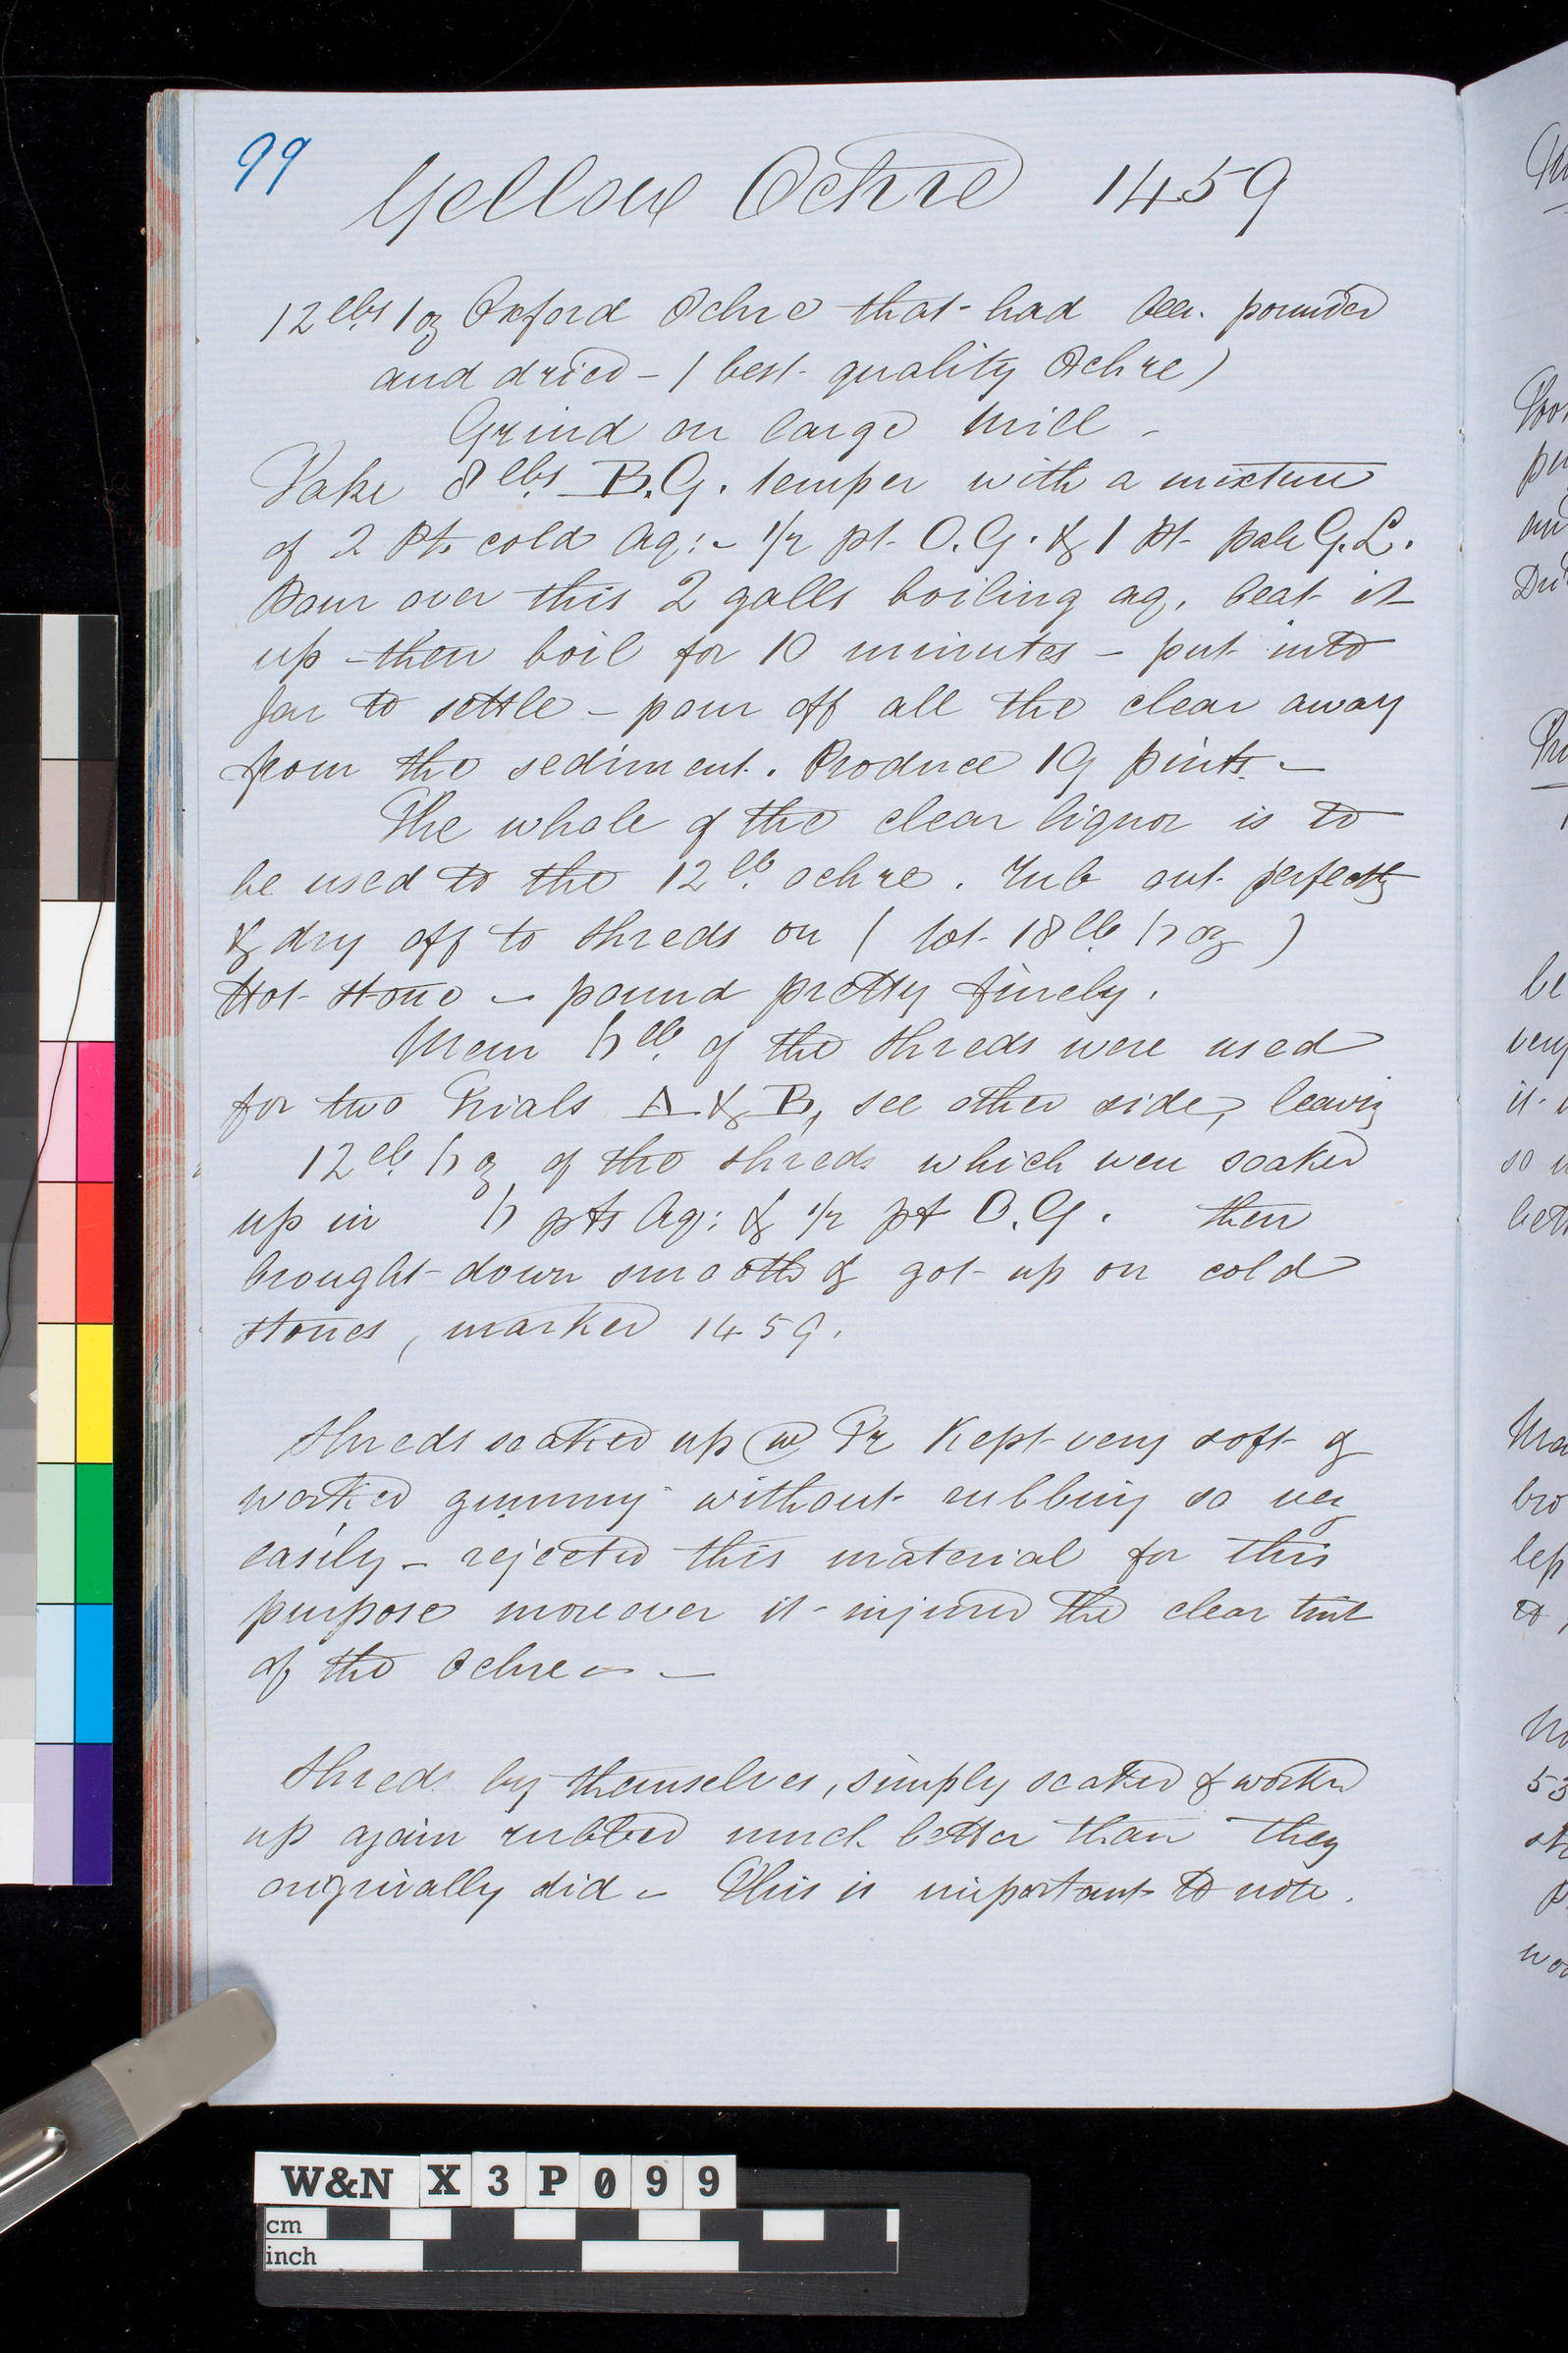 99
Yellow Ochre 1459
12 lbs 1 oz Oxford Ochre that had been pounded
and dried - (best quality Ochre)
Grind on large Mill -
Take 8 lbs B.G. temper with a mixture
of 2 Pts cold Aq: - 1/2 pt O.G. & 1 Pt pale G.L.
Pour over this 2 galls boiling aq, beat it
up - then boil for 10 minutes - put into
Jar to settle - pour off all the clear away
from the sediment. Produce 19 pints -
The whole of the clear liquor is to
be used to the 12 lb ochre. Rub out perfectly
& dry off to shreds on (tot 18 lb oz)
Hot stone - pound pretty finely.
Mem lb of the shreds were used
for two Trials A & B, see other side, leaving
12 lb oz of the shreds which were soaked
up in pts Aq: & 1/2 pt O.G. then
brought down smooth & got up on cold
stones, marked 1459.
Shreds soaked up Kept very soft &
worked gummy without rubbing so very
easily - rejected this material for this
purpose moreover it injured the clear tint
of the Ochre -
Shreds by themselves, simply soaked & worked
up again rubbed much better than they
originally did - This is important to note.
W&N X3P099
cm
inch